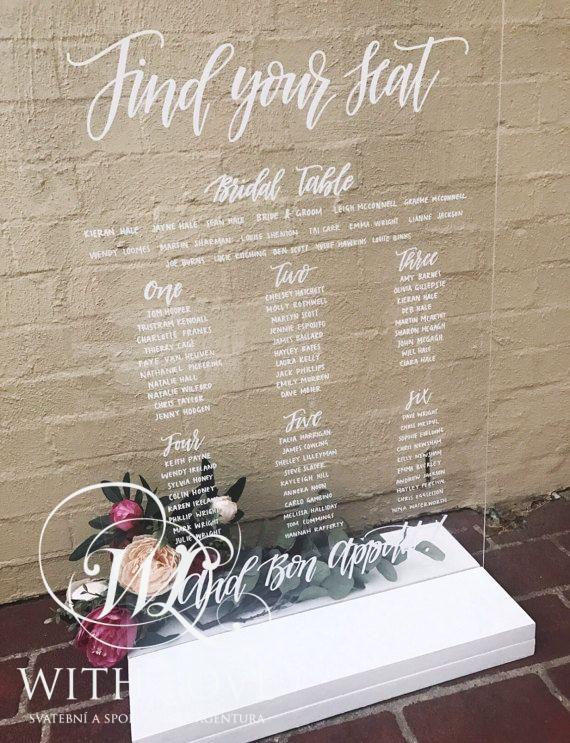 Find your seat
Bridal Table
KIERAN HALE JAYNE HALE SEAN HALE BRIDE & GROOM LEIGH MCCONNELL GRAEME MCCONNELL
WENDY LOOMES MARTIN SHARMAN LOUISE SHENTON TAI CARR EMMA WRIGHT LIANNE JACKSON
JOE BURNS LUCIE KITCHING BEN SCOTT HAWKINS LOUISE BINKS
One
TOM HOOPER
TRISTRAM KENDALL
CHARLOTTE FRANKS
THIERRY CAGE
FAYE VAN HEUVEN
NATHANIEL PICKERING
NATALIE HALL
NATALIE WILFORD
CHRIS TAYLOR
JENNY HODGEN
Two
CHELSEY HATCHOTT
MOLLY ROTHWELL
MARTYN SCOTT
JENNIE ESPOSITO
JAMES BALLARD
HAYLEY BATES
LAURA KELLY
JACK PHILLIPS
EMILY MURREN
DAVE MOIER
Three
AMY BARNES
OLIVIA GILLEPSIE
KIERAN HALE
DEB HALE
MARTIN MCARTHY
SHARON MCGAGH
JOHN MCGAGH
WILL HALE
CIARA HALE
Four
KEITH PAYNE
WENDY IRELAND
SYLVIA HONEY
COLIN HONEY
KAREN IRELAND
PHILLIP WRIGHT
MARK WRIGHT
JULIE WRIGHT
Five
TALIA HARRIGAN
JAMES COWLING
SHELLEY LILLEYMAN
STEVE SLATER
KAYLEIGH HILL
ANNEKA NOON
CARLO GAMBINO
MELISSA HALLIDAY
TOM CUMMINGS
HANNAH RAFFERTY
Six
DAVE WRIGHT
CHRIS
SOPHIE FIELDING
CHRIS NEWSHAM
KELLY NEWSHAM
EMMA BUCKLEY
ANDREW JACKSON
HAYLEY PERCIVAL
CHRIS EGGLESTON
NINA WATERWORTH
and Bon Appetit
WL
WITH LOVE
SVATEBNÍ A AGENTURA